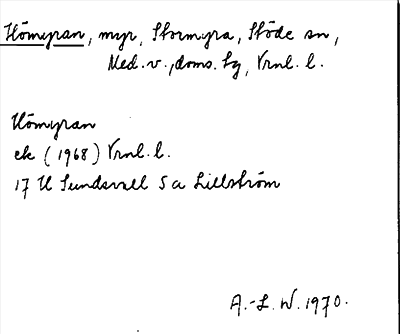 Hömyran, myr, Stormyra, Stöde sn,
Med. v., doms. tg, Vrnl. l.
Hömyran
ek (1968) Vrnl. l.
17 H Sundsvall 5 a Lillström
A.-L. W. 1970.